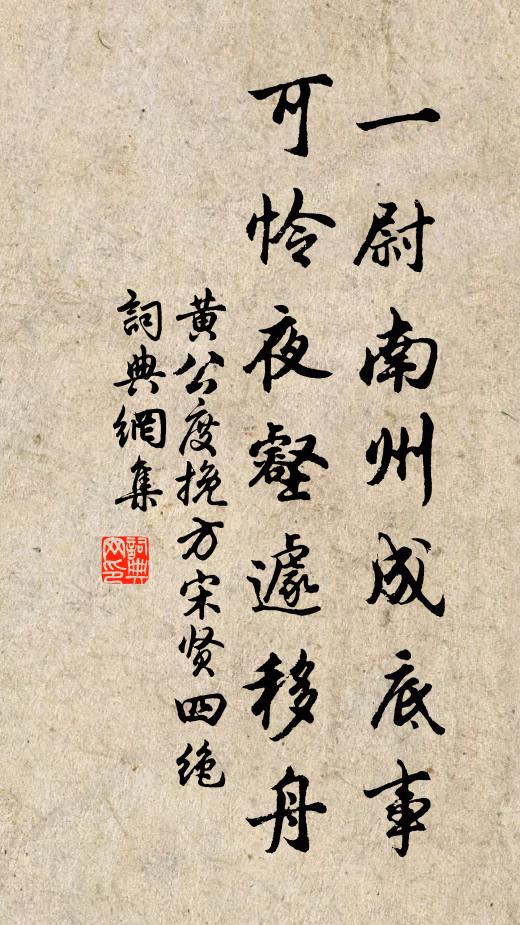 一尉南州成底事
可怜夜壑遽移舟
黄公度挽方宋贤四绝
詞典網集
詞典
网印